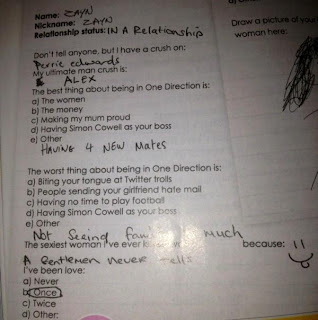 Name: ZAYN
Nickname: ZAYN
Relationship status: IN A Relationship
Don't tell anyone, but I have a crush on:
Perrie edwards
My ultimate man crush is:
ALEX
The best thing about being in One Direction is:
a) The women
b) The money
c) Making my mum proud
d) Having Simon Cowell as your boss
e) Other
HAVING 4 NEW Mates
The worst thing about being in One Direction is:
a) Biting your tongue at Twitter trolls
b) People sending your girlfriend hate mail
c) Having no time to play football
d) Having Simon Cowell as your boss
e) Other
Not Seeing much
The sexiest woman I've ever because:
A Gentlemen never tells
I've been love:
a) Never
b) Once
c) Twice
d) Other:
Draw a picture of you
woman here: